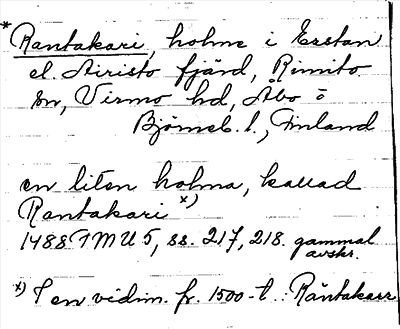 * Rantakari, holme i Erstan
el. Airisto fjärd, Rimito
sn, Virmo hd, Åbo o
Björneb. l., Finland
en liten holma, kallad
Rantakari x)
1488 FMU 5, ss. 217, 218. gammal
avskr.
x) I en vidim. fr. 1500-t.: Räntakarr